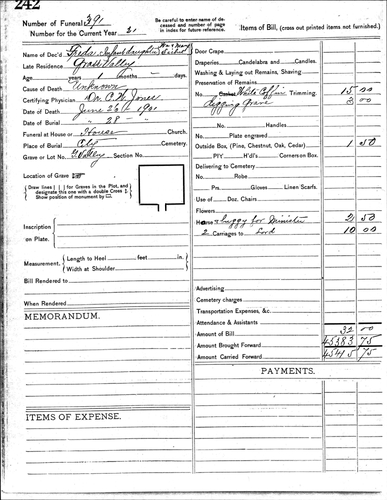 242
Number of Funeral 391
Number for the Current Year 31
Be careful to enter name of deceased and number of page in index for future reference.
Items of Bill, (cross out printed items not furnished.)
Name of Dec'd Freda Infant daughter
Late Residence Grass Valley
Age years 1 months - days.
Cause of Death Unknown
Certifying Physician Dr. C. W. Jones
Date of Death June 26th 190
Date of Burial 28 -
Funeral at House or House Church.
Place of Burial City Cemetery
Grave or Lot No. G Valley Section No.
Location of Grave
Draw lines for Graves in the Plot, and designate this one with a double Cross
Show position of monument by
Inscription on Plate.
Measurement. Length to Heel feet in.
Width at Shoulder
Bill Rendered to
When Rendered
MEMORANDUM.
ITEMS OF EXPENSE.
Door Crape
Draperies Candelabra and Candles.
Washing & Laying out Remains, Shaving
Preservation of Remains
No. Casket White Coffin Trimming. 15 00
Digging Grave 3 00
No. Handles
Plate engraved
Outside Box, (Pine, Chestnut, Oak, Cedar) 1 50
No. P'l'y H'dl's Corners on Box.
Delivering to Cemetery
No. Robe
Prs. Gloves Linen Scarfs.
Use of Doz. Chairs
Flowers
Horse & buggy for Minister 2 50
2 Carriages to 10 00
Advertising
Cemetery charges
Transportation Expenses, &c.
Attendance & Assistants
Amount of Bill 32 00
Amount Brought Forward 45383 75
Amount Carried Forward 45415 75
PAYMENTS.